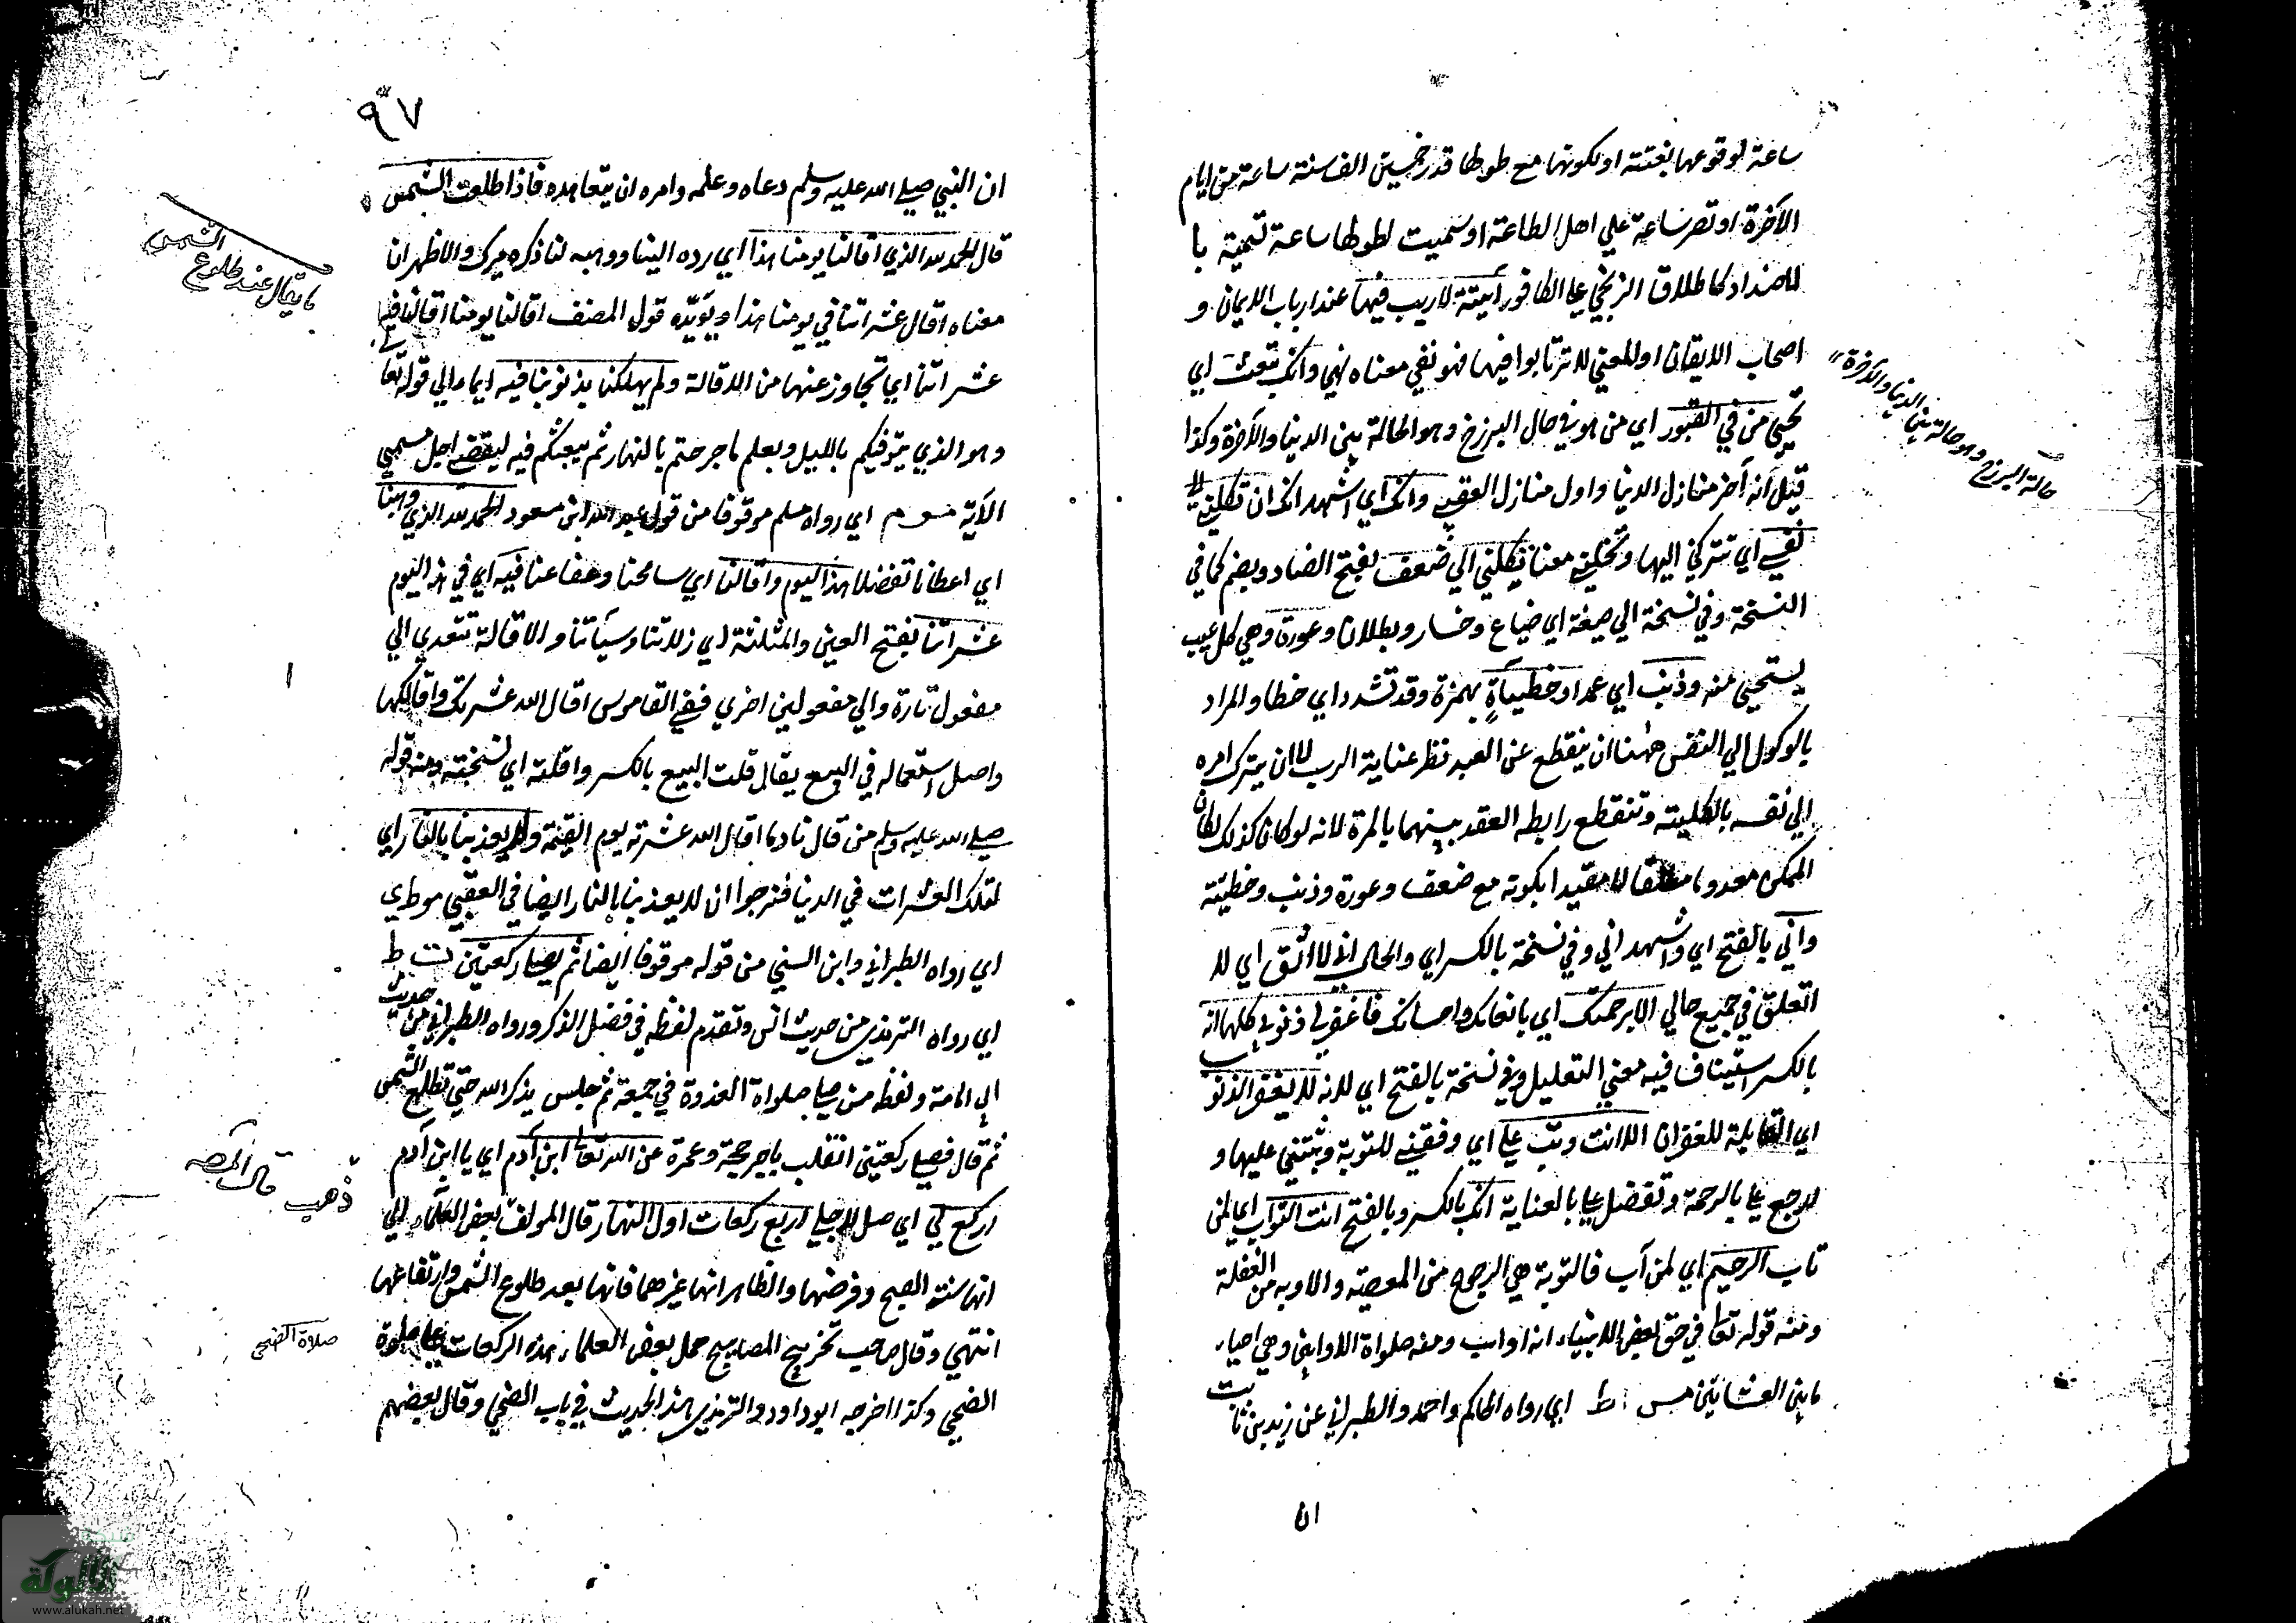 ساعة لوقوعها بغتة او لكونها مع طولها قدر خمسين الف سنة ساعة من ايام
الآخرة او تصر ساعة علي اهل الطاعة او سميت لطولها ساعة تسمية با
لاضداد كاطلاق الزنجي علي الكافور آتية لا ريب فيها عند ارباب الايمان و
اصحاب الايقان او المعني لا ترتابوا فيها فهو نفي معناه نهي وانك تبعث اي
تحيي من في القبور اي من هو في حال البرزخ وهو الحالة بين الدنيا والآخرة وكذا
قيل انه آخر منازل الدنيا واول منازل العقبي وانك اي اشهد انك ان تكلني الي
نفسي اي تتركني اليها وتخليني معنا تكلني الي ضعف بفتح الضاد وبضم كما في
النسخة وفي نسخة الي ضيعة اي ضياع وخسار وبطلان وعورة وهي كل عيب
يستحيي منه وذنب اي عمد او خطيئة بهمزة وقد تشدد اي خطا والمراد
بالوكول الي النفس ههنا ان ينقطع عن العبد نظر عناية الرب لا ان يترك امره
الي نفسه بالكلية وتنقطع رابطه العقد بينهما بالمرة لانه لو كان كذلك لكان
الممكن معدوما مطلقا لا مقيدا بكونه مع ضعف وعورة وذنب وخطيئة
واني بالفتح اي واشهد اني وفي نسخة بالكسر اي والحال اني لا اثق اي لا
اتعلق في جميع حالي الا برحمتك اي بانعامك واحسانك فاغفر لي ذنوبي كلها انه
بالكسر استيناف فيه معني التعليل وفي نسخة بالفتح اي لانه لا يغفر الذنوب
اي القابلة للغفران الا انت وتب علي اي وفقني للتوبة وثبتني عليها و
لرجع علي بالرحمة وتفضل علي بالعناية انك بالكسر وبالفتح انت التواب اي لمن
تاب الرحيم اي لمن آب فالتوبة هي الرجوع من المعصية والاوبة من الغفلة
ومنه قوله تعا في حق بعض الانبياء انه اواب ومنه صلواة الاوابين وهي احياء
ما بين العشائين مس ا ط اي رواه الحاكم واحمد والطبراني عن زيد بن ثابت
ان
حالة البرزخ وهو حالة بين الدنيا والآخرة
٩٧
ان النبي صلي الله عليه وسلم دعاه وعلمه وامره ان يتعاهده فاذا طلعت الشمس
قال الحمد لله الذي اقالنا يومنا هذا اي رده الينا ووهبه لنا ذكره ميرك والاظهر ان
معناه اقال عثراتنا في يومنا هذا ويؤيده قول المصنف اقالنا يومنا اقالنا فيه
عثراتنا اي تجاوز عنها من الاقالة ولم يهلكنا بذنوبنا فيه ايماء الي قوله تعالي
وهو الذي يتوفيكم بالليل ويعلم ما جرحتم بالنهار ثم يبعثكم فيه ليقضي اجل مسمي
الآية مو م اي رواه مسلم موقوفا من قول عبد الله ابن مسعود الحمد لله الذي وهبنا
اي اعطانا تفضلا هذا اليوم واقالنا اي سامحنا وعفا عنا فيه اي في هذا اليوم
عثراتنا بفتح العين والمثلثة اي زلاتنا وسيآتنا والاقالة تتعدي الي
مفعول تارة والي مفعولين اخري ففي القاموس اقال الله عثرتك واقالكها
واصل استعماله في البيع يقال قلت البيع بالكسر واقلته اي فسخته ومنه قوله
صلي الله عليه وسلم من قال نادما اقال الله عثرته يوم القيمة ولم يعذبنا بالنار اي
لتلك العثرات في الدنيا فنرجوا ان لا يعذبنا بالنار ايضا في العقبي مو ط ي
اي رواه الطبراني وابن السني من قوله موقوفا ايضا ثم يصلي ركعتين ت ط
اي رواه الترمذي من حديث انس وتقدم لفظه في فضل الذكر ورواه الطبراني من حديث
ابي امامة ولفظه من صلي صلواة الغدوة في جمعة ثم جلس يذكر الله حتي تطلع الشمس
ثم قال فصلي ركعتين انقلب باجر حجة وعمرة عن الله تعا ابن آدم اي يا ابن آدم
اركع لي اي صل لاجلي اربع ركعات اول النهار قال المولف بعض العلماء الي
انها سنة الصبح وفرضها والظاهر انها غيرهما فانها بعد طلوع الشمس وارتفاعها
انتهي وقال صاحب تخريج المصابيح حمل بعض العلماء هذه الركعات علي صلوة
الضحي وكذا اخرجه ابو داود والترمذي هذا الحديث في باب الضحي وقال بعضهم
ما يقال عند طلوع الشمس
ذهب
صلاة الضحي
الألوكة
www.alukah.net